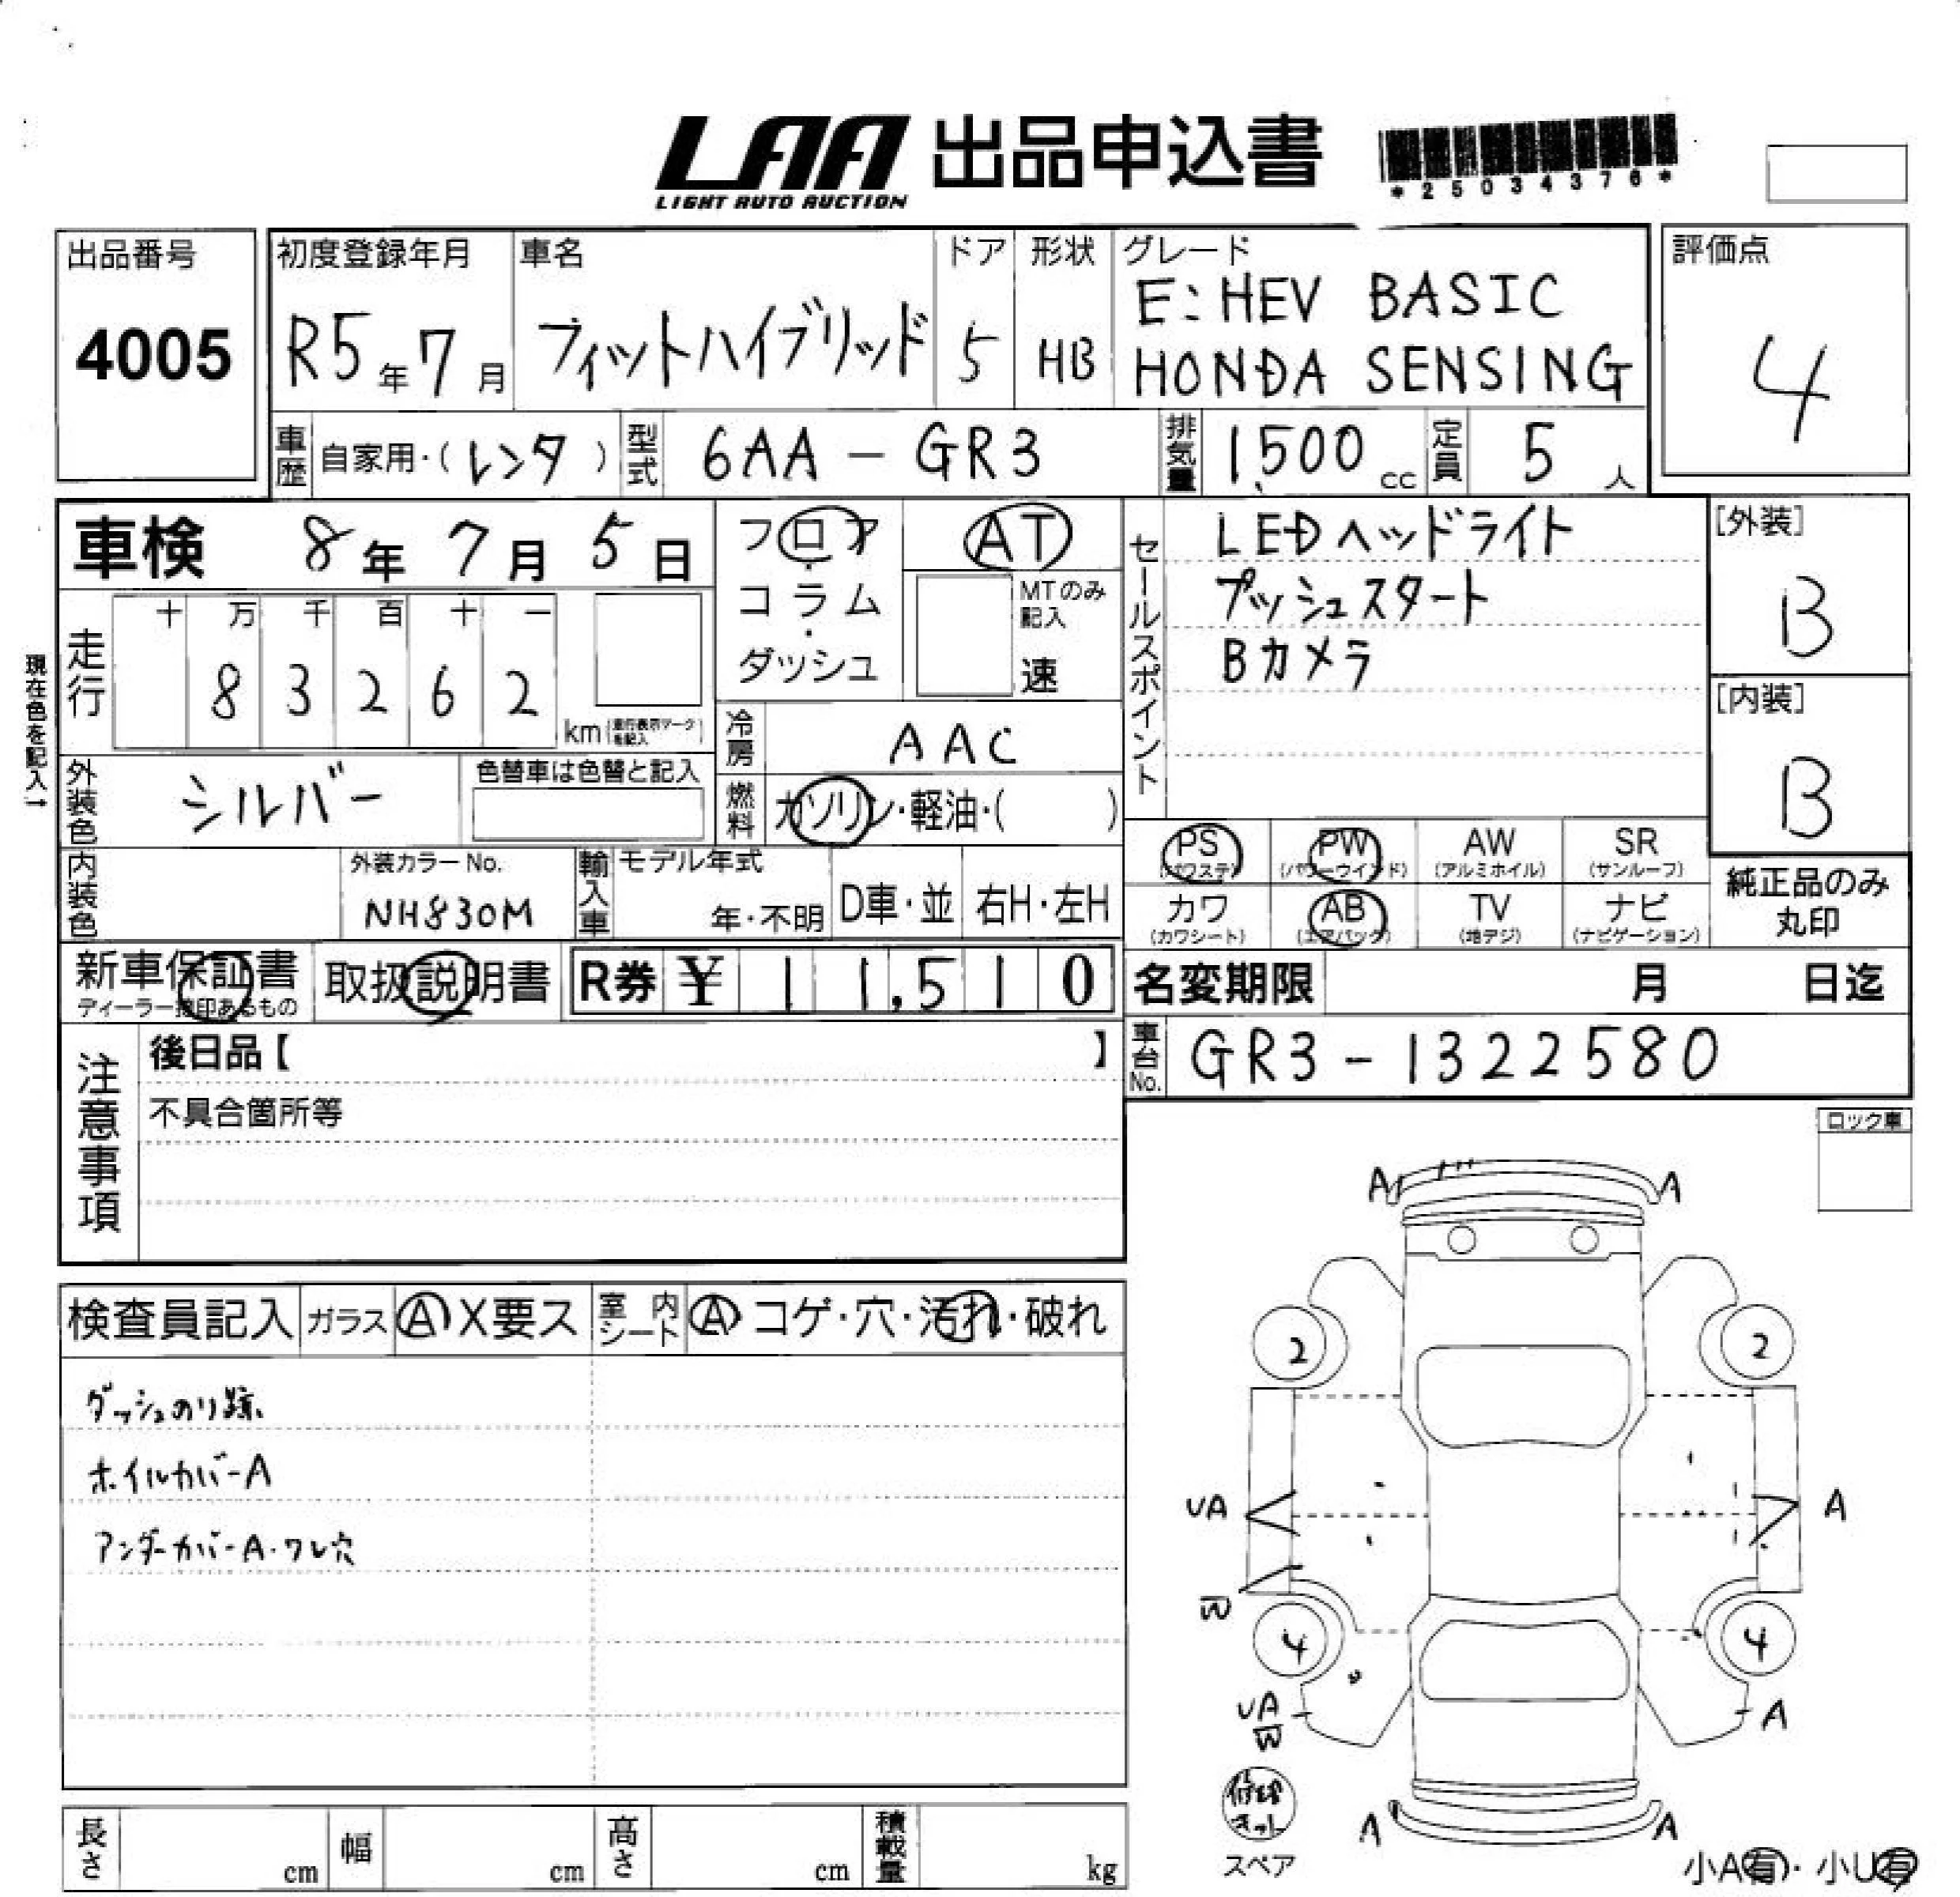 LAA 出品申込書
LIGHT AUTO AUCTION
*25034376*
出品番号
4005
初度登録年月
R5年7月
車名
フィットハイブリッド
ドア
5
形状
HB
グレード
E:HEV BASIC
HONDA SENSING
評価点
4
車歴 自家用・(レンタ)
型式 6AA-GR3
排気量 1,500 cc
定員 5 人
車検 8年7月5日
フロア・コラム・ダッシュ
AT
MTのみ記入
速
セールスポイント
LEDヘッドライト
プッシュスタート
Bカメラ
[外装]
B
[内装]
B
現在色を記入→
走行
十 万 千 百 十 一
8 3 2 6 2
km(走行表示マークを記入)
冷房 AAC
外装色 シルバー
色替車は色替と記入
燃料 ガソリン・軽油・( )
内装色
外装カラーNo.
NH830M
輸入車
モデル年式
年・不明
D車・並
右H・左H
PS
(パワステ)
PW
(パワーウインド)
AW
(アルミホイル)
SR
(サンルーフ)
カワ
(カワシート)
AB
(エアバック)
TV
(地デジ)
ナビ
(ナビゲーション)
純正品のみ
丸印
新車保証書
ディーラー捺印あるもの
取扱説明書
R券 ¥ 11,510
名変期限 月 日迄
車台No. GR3-1322580
注意事項
後日品【 】
不具合箇所等
ロック車
検査員記入
ガラス A X要ス
室内シート A コゲ・穴・汚れ・破れ
ダッシュのり跡
ホイルカバーA
アンダーカバーA・ワレ穴
A A
2 2
UA A
W
4 4
UA A
W
修理キット
スペア
A A
小A有・小U有
長さ cm
幅 cm
高さ cm
積載量 kg